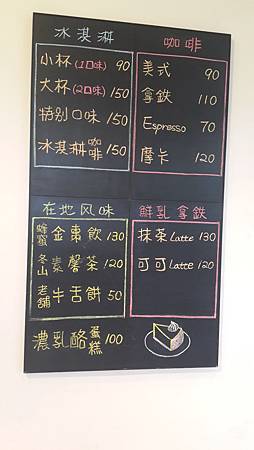 冰淇淋
小杯(1口味) 90
大杯(2口味) 150
特别口味 150
冰淇淋咖啡 150
咖啡
美式 90
拿鉄 110
Espresso 70
摩卡 120
在地风味
蜂蜜金棗飲 130
冬山素馨茶 120
老舖牛舌餅 50
濃乳酪蛋糕 100
鮮乳拿鉄
抹茶Latte 130
可可Latte 120